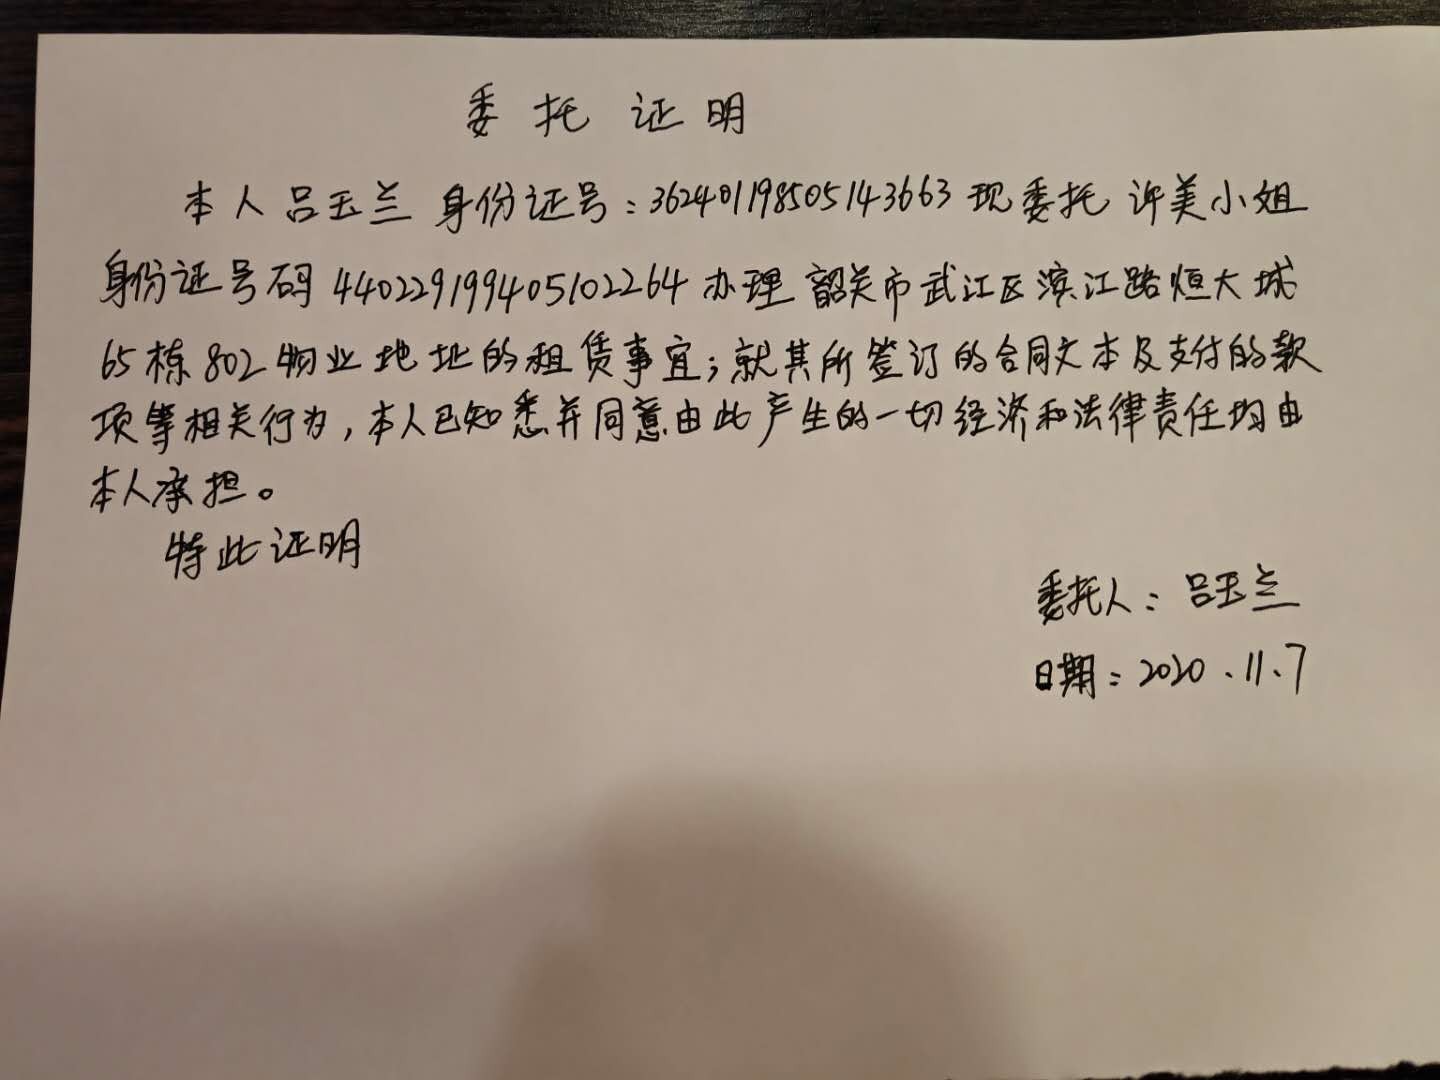 委托证明
本人吕玉兰身份证号：362401198505143663现委托许美小姐
身份证号码440229199405102264办理韶关市武江区滨江路恒大城
65栋802物业地址的租赁事宜；就其所签订的合同文本及支付的款
项等相关行为，本人已知悉并同意由此产生的一切经济和法律责任均由
本人承担。
特此证明
委托人：吕玉兰
日期：2020、11、7